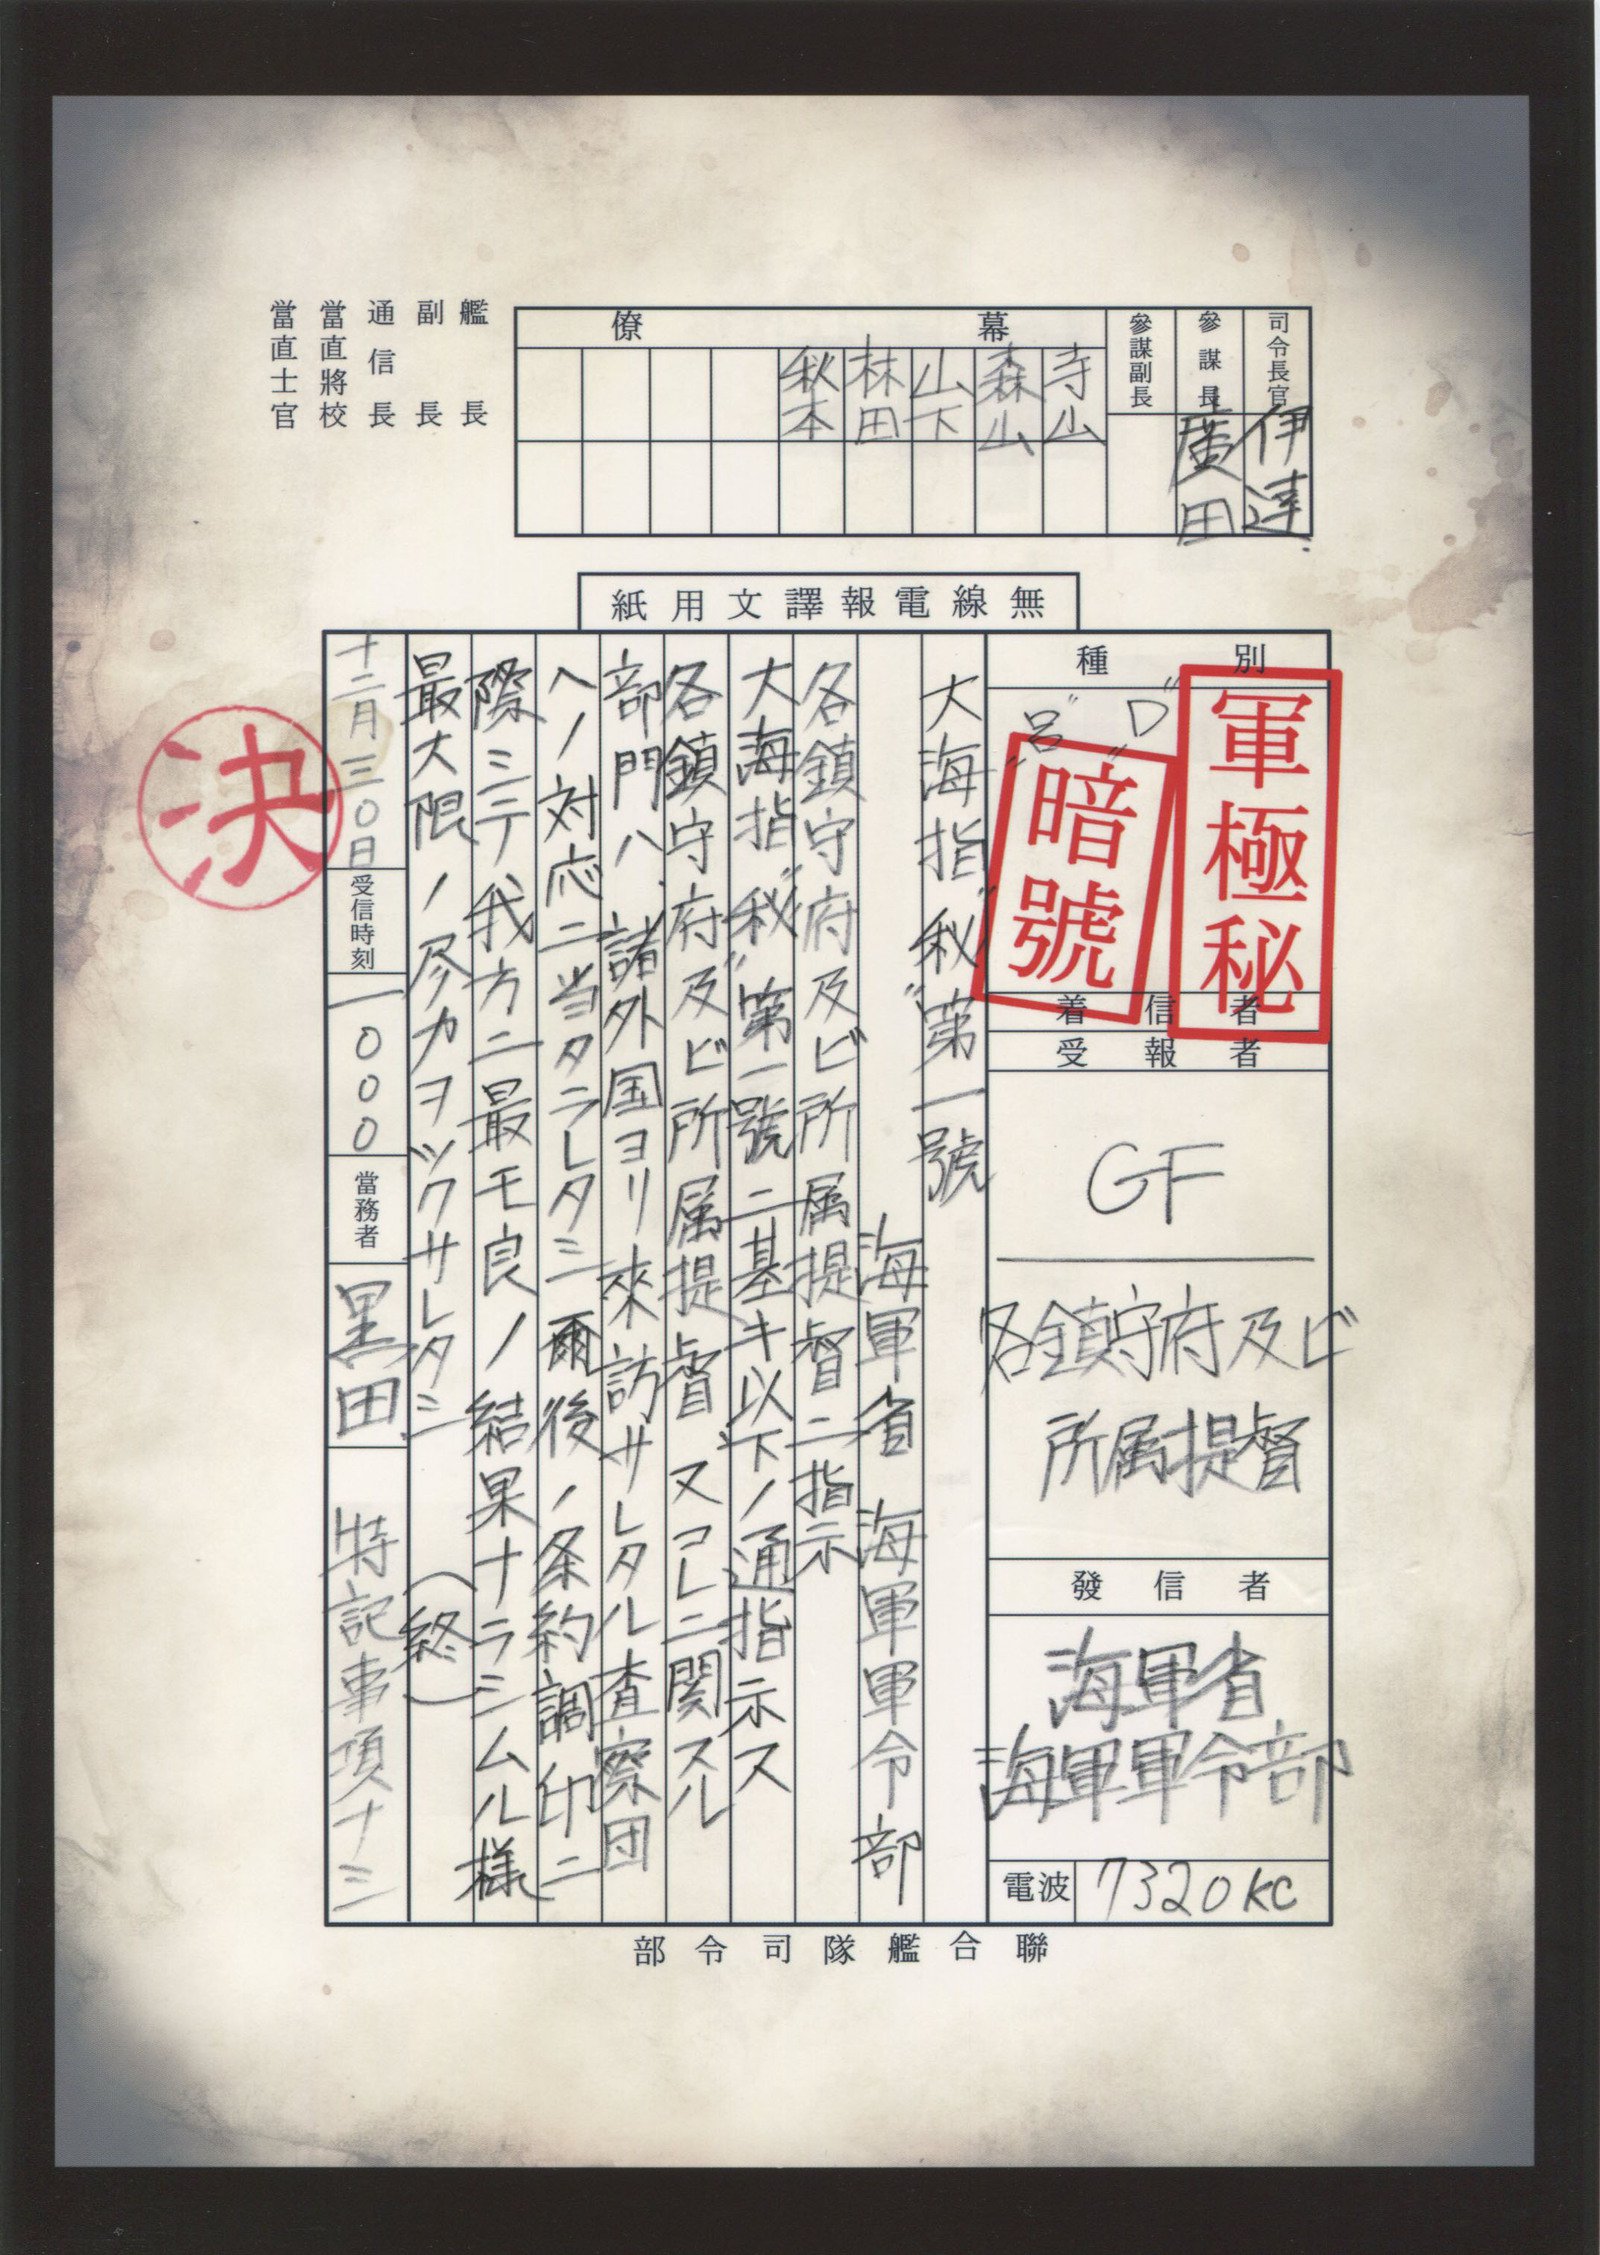 司令長官
伊達
參謀長
廣田
參謀副長
幕僚
寺山
森山
山下
林田
秋本
艦長
副長
通信長
當直將校
當直士官
無線電報譯文用紙
種別
軍極秘
"D"
"呂"
暗號
着信者
受報者
GF
各鎮守府及ビ
所属提督
發信者
海軍省
海軍軍令部
電波
7320KC
大海指"秘"第一號
海軍省 海軍軍令部
各鎮守府及ビ所属提督ニ指示
大海指"秘"第一號ニ基キ以下ノ通指示ス
各鎮守府及ビ所属提督、又コレニ関スル
部門ハ、諸外国ヨリ来訪サレタル査察団
ヘノ対応ニ当タラレタシ爾後ノ条約調印ニ
際シテ我方ニ最モ良ノ結果ナラシムル様
最大限ノ尽力ヲツクサレタシ
(終)
十二月三〇日
受信時刻
一000
當務者
黒田
特記事項ナシ
決
聯合艦隊司令部